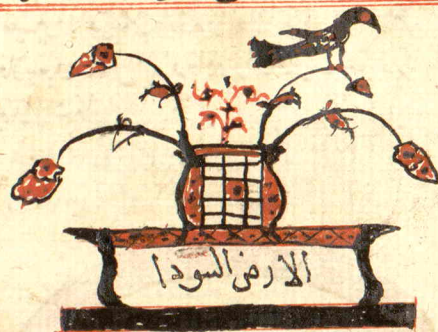 الارض السودا